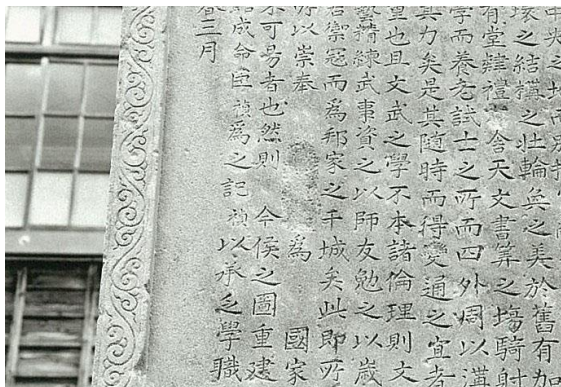 中央之
環之結搆之壯輪奐之美於舊有加
有堂肄禮舍天文書算之塲騎射
學而養老試士之所而四外周以溝
其力矣是其隨時而得變通之宜者
重也且文武之學不本諸倫理則文
藝精練武事資之以師友勉之以歲
禦寇而為邦家之干城矣此即所
所以崇奉 為 國家
不可易者也然則 今侯之圖重建
成命臣禎為之記禎以承乏學職
春三月